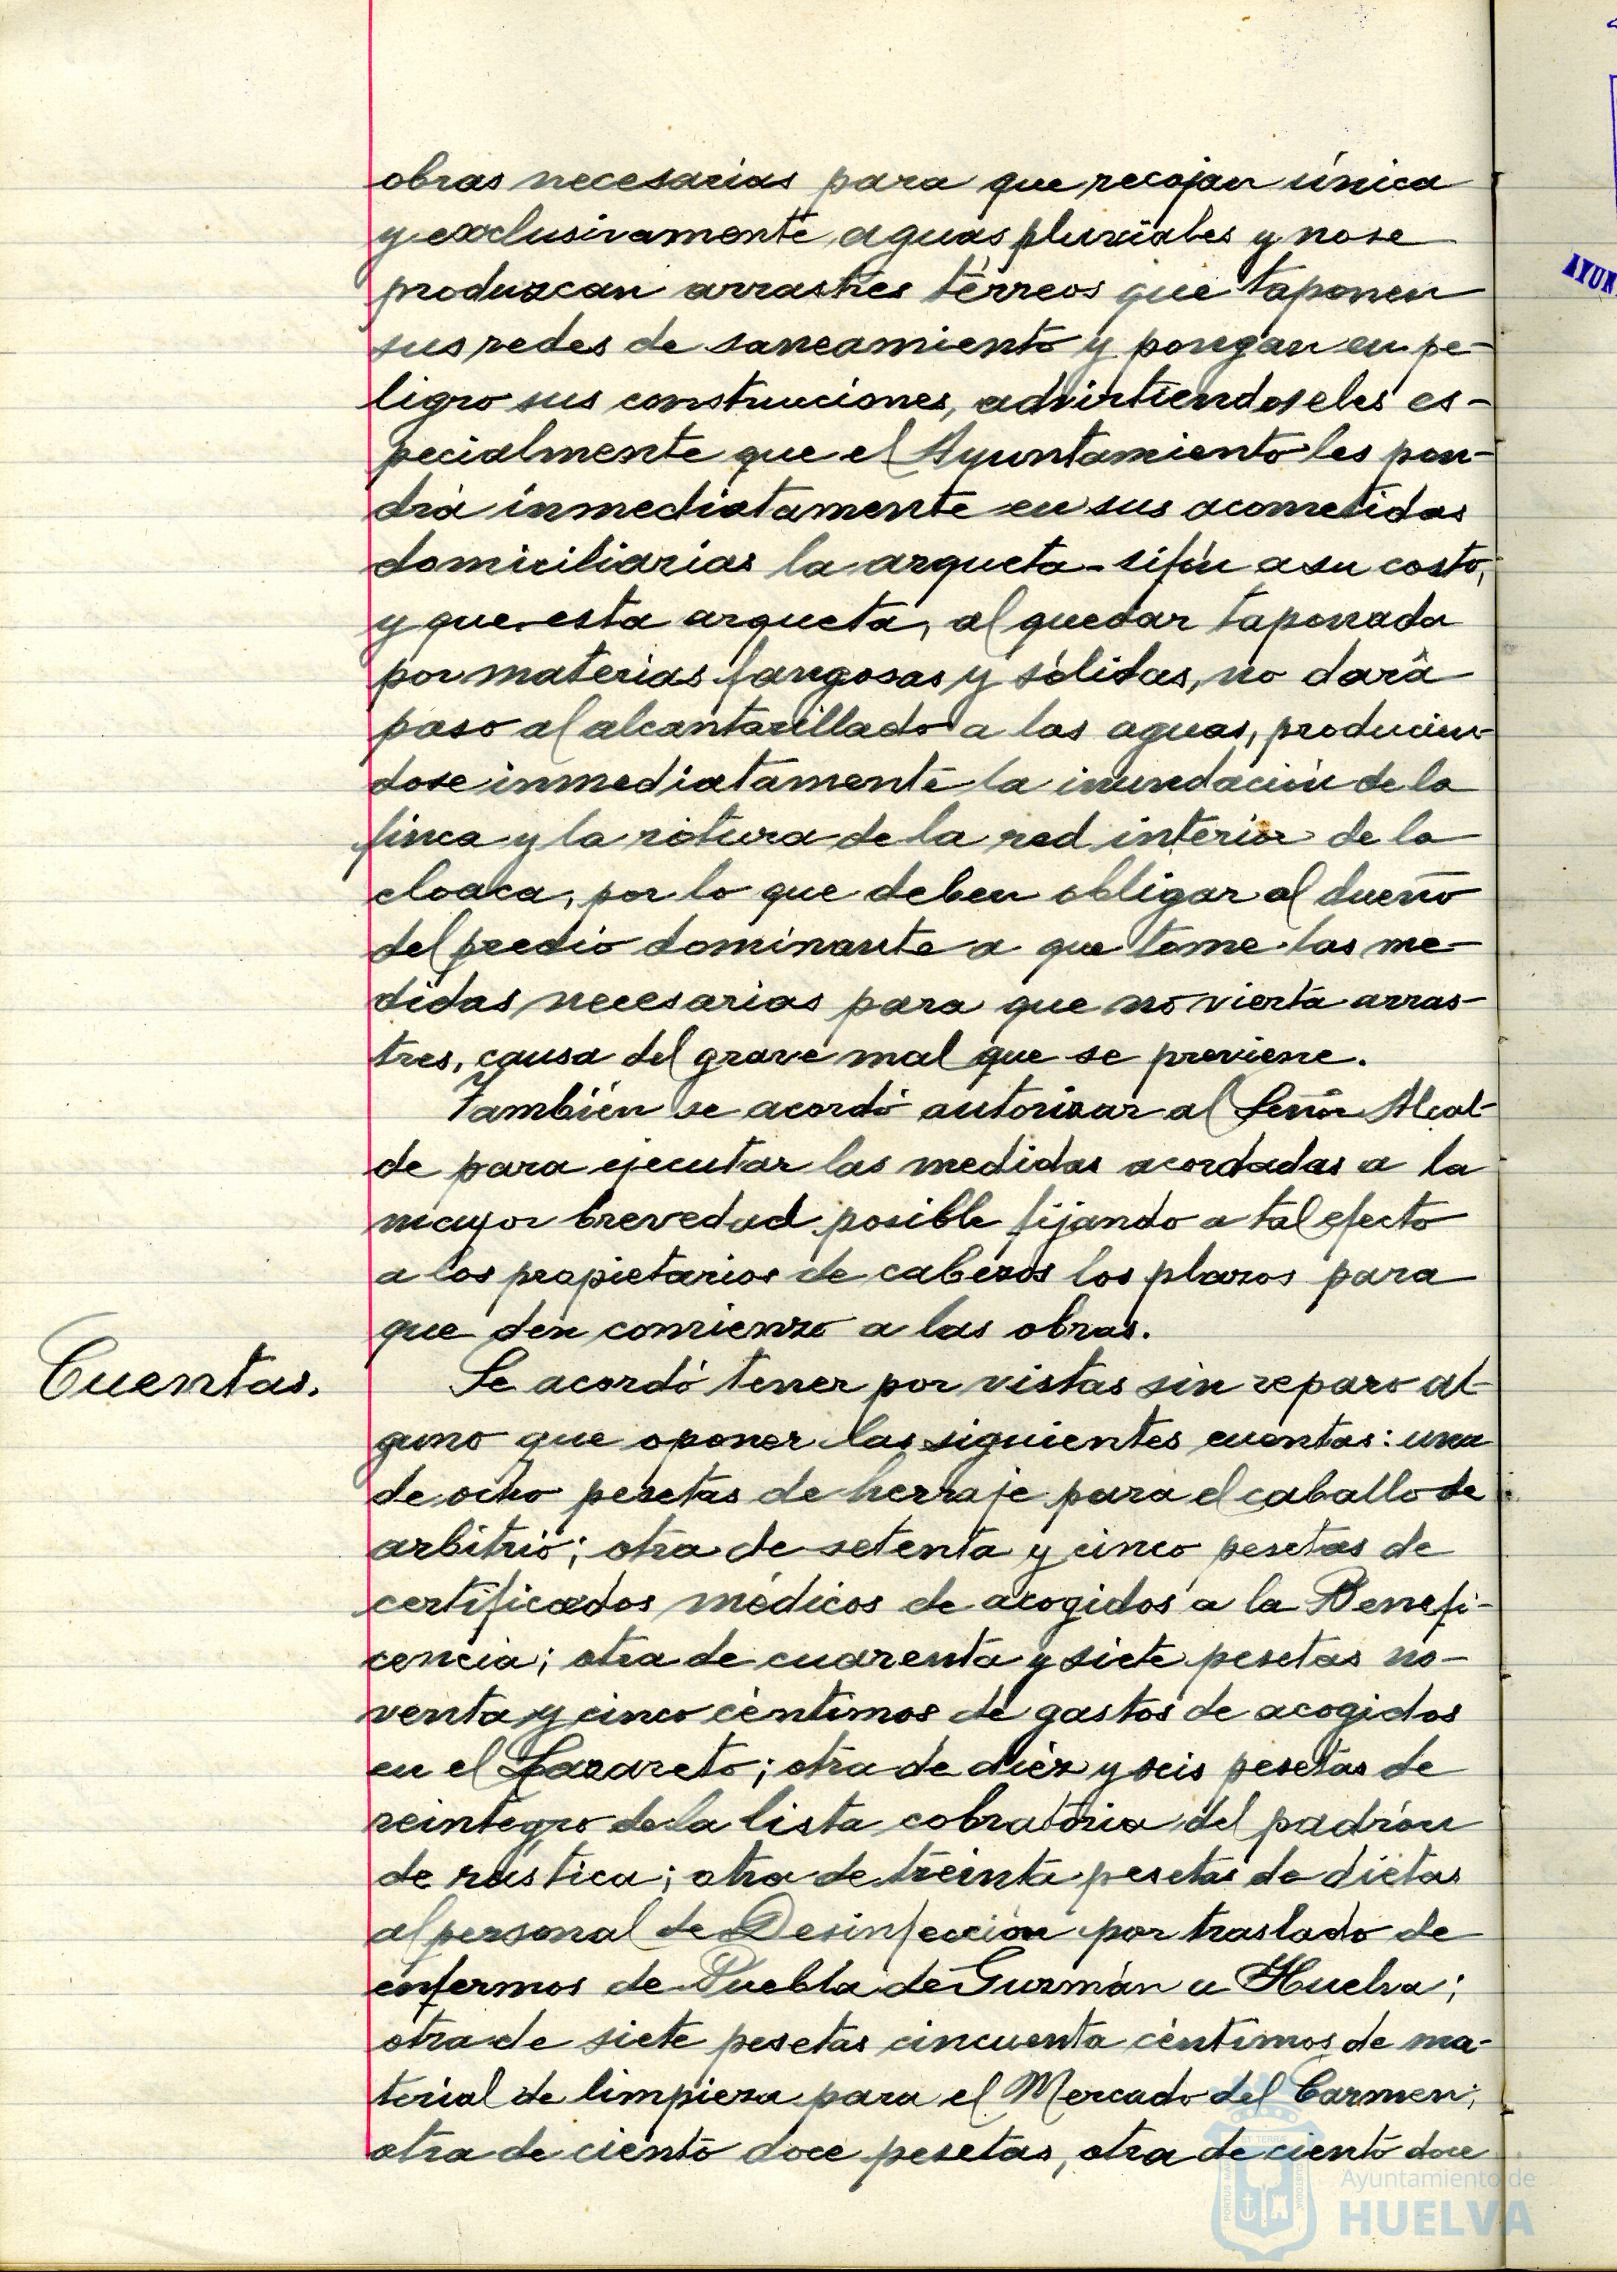 obras necesarias para que recojan única
y exclusivamente aguas pluviales y no se
produzcan arrastres térreos que taponen
sus redes de saneamiento y pongan en pe-
ligro sus construcciones, advirtiendoseles es-
pecialmente que el Ayuntamiento les pon-
drá inmediatamente en sus acometidas
domiciliarias la arqueta-sifón a su costo,
y que esta arqueta, al quedar taponada
por materias fangosas y sólidas, no dará
paso al alcantarillado a las aguas, producien-
dose inmediatamente la inundación de la
finca y la rotura de la red interior de la
cloaca, por lo que deben obligar al dueño
del predio dominante a que tome las me-
didas necesarias para que no vierta arras-
tres, causa del grave mal que se previene.
También se acordó autorizar al Señor Alcal-
de para ejecutar las medidas acordadas a la
mayor brevedad posible fijando a tal efecto
a los propietarios de cabezos los plazos para
que den comienzo a las obras.
Cuentas.
Se acordó tener por vistas sin reparo al-
guno que oponer las siguientes cuentas: una
de ocho pesetas de herraje para el caballo de
arbitrio; otra de setenta y cinco pesetas de
certificados médicos de acogidos a la Benefi-
cencia; otra de cuarenta y siete pesetas no-
venta y cinco céntimos de gastos de acogidos
en el Lazareto; otra de diez y seis pesetas de
reintegro de la lista cobratoria del padrón
de rústica; otra de treinta pesetas de dietas
al personal de Desinfección por traslado de
enfermos de Puebla de Guzmán a Huelva;
otra de siete pesetas cincuenta céntimos de ma-
terial de limpieza para el Mercado del Carmen;
otra de ciento doce pesetas, otra de ciento doce
AYUN
Ayuntamiento de
HUELVA